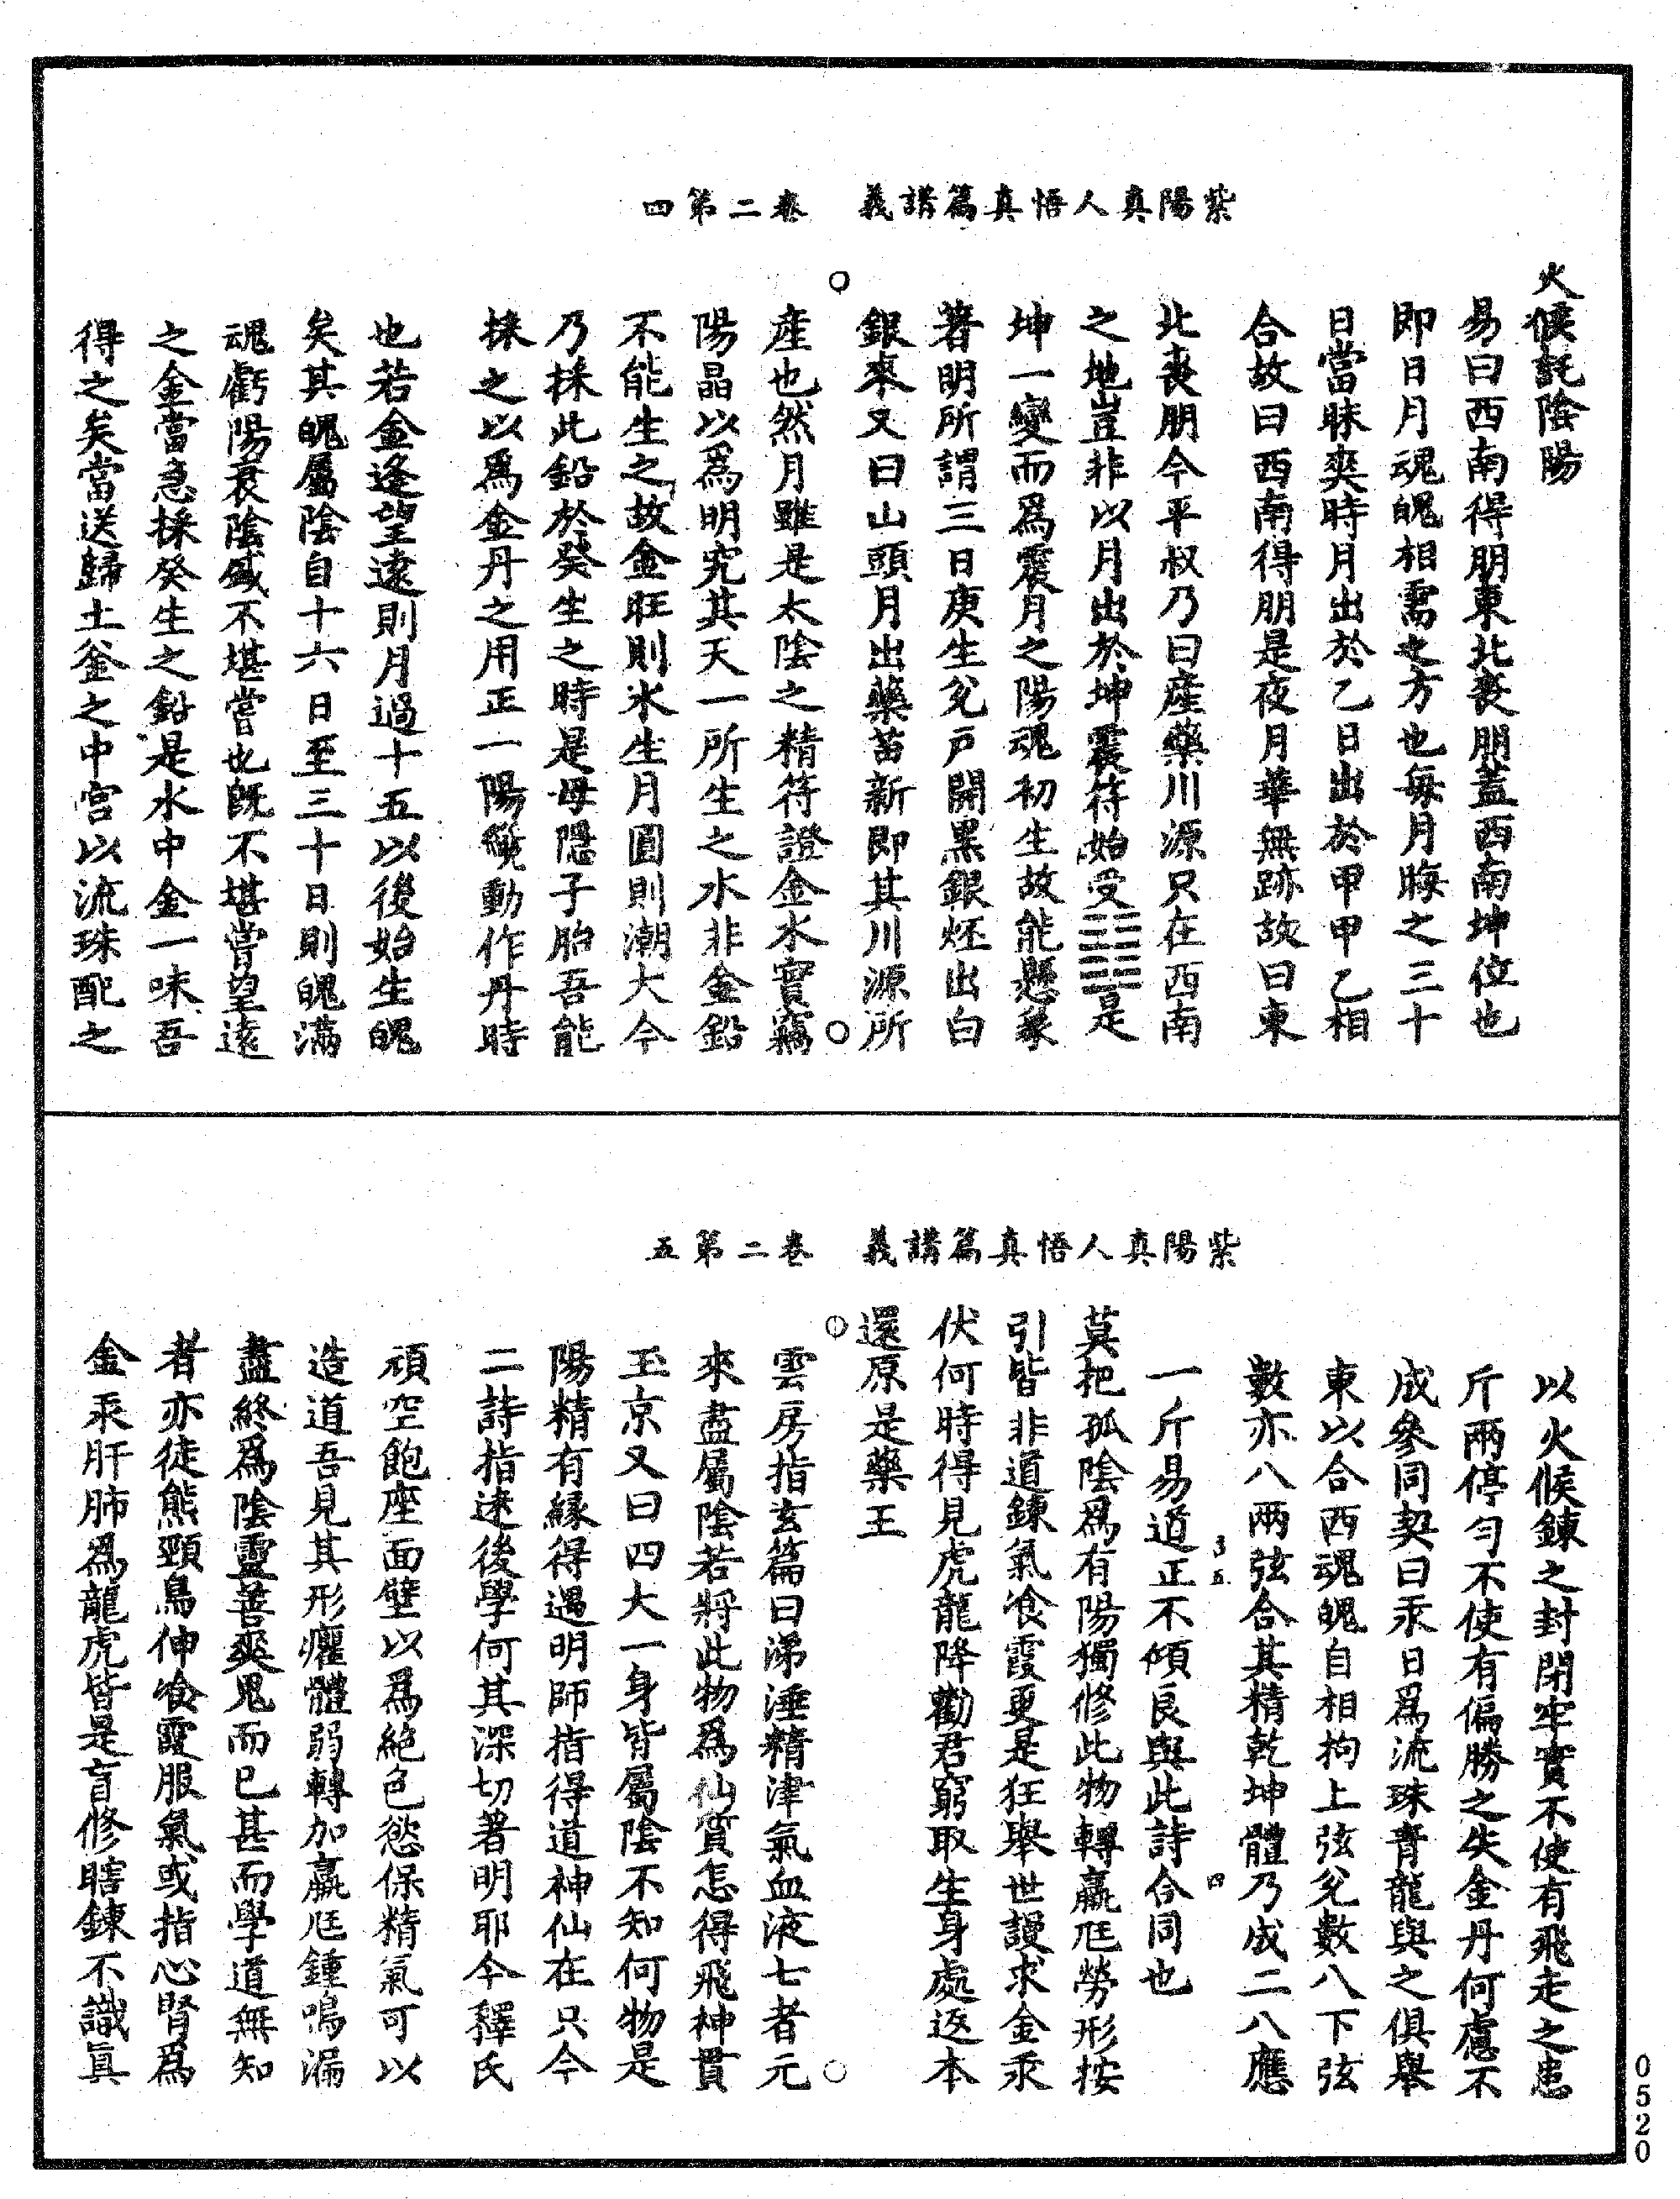 紫陽真人悟真篇講義　卷二第四
火候託陰陽
易曰西南得朋東北喪朋蓋西南坤位也
即日月魂魄相需之方也每月晦之三十
日當昧爽時月出於乙日出於甲甲乙相
合故曰西南得朋是夜月華無跡故曰東
北喪朋今平叔乃曰産藥川源只在西南
之地豈非以月出於坤震符始受☷☳是
坤一變而爲震月之陽魂初生故能懸象
著明所謂三日庚生兊戸開黑銀烓出白
銀來又曰山頭月出藥苗新即其川源所
産也然月雖是太陰之精符證金水實竊
陽晶以爲明究其天一所生之水非金鉛
不能生之故金旺則水生月圓則潮大今
乃採此鉛於癸生之時是母隱子胎吾能
採之以爲金丹之用正一陽纔動作丹時
也若金逢望遠則月過十五以後始生魄
矣其魄屬陰自十六日至三十日則魄滿
魂虧陽衰陰盛不堪嘗也旣不堪嘗望遠
之金當急採癸生之鉛是水中金一味吾
得之矣當送歸土釜之中宫以流珠配之
紫陽真人悟真篇講義　卷二第五
以火候鍊之封閉牢實不使有飛走之患
斤兩停勻不使有偏勝之失金丹何慮不
成參同契曰汞日爲流珠青龍與之俱舉
東以合西魂魄自相拘上弦兊數八下弦
數亦八兩弦合其精乾坤體乃成二八應
一斤易道正不傾良與此詩合同也
莫把孤陰爲有陽獨修此物轉羸尫勞形按
引皆非道鍊氣飡霞更是狂舉世謾求金汞
伏何時得見虎龍降勸君窮取生身處返本
還原是藥王
雲房指玄篇曰涕淚精津氣血液七者元
來盡屬陰若將此物爲仙質怎得飛神貫
玉京又曰四大一身皆屬陰不知何物是
陽精有緣得遇明師指得道神仙在只今
二詩指迷後學何其深切著明耶今釋氏
頑空飽座面壁以爲絶色慾保精氣可以
造道吾見其形癯體弱轉加羸尫鍾鳴漏
盡終爲陰靈善爽鬼而已甚而學道無知
者亦徒熊頸鳥伸飡霞服氣或指心腎爲
金汞肝肺爲龍虎皆是盲修瞎鍊不識眞
0520